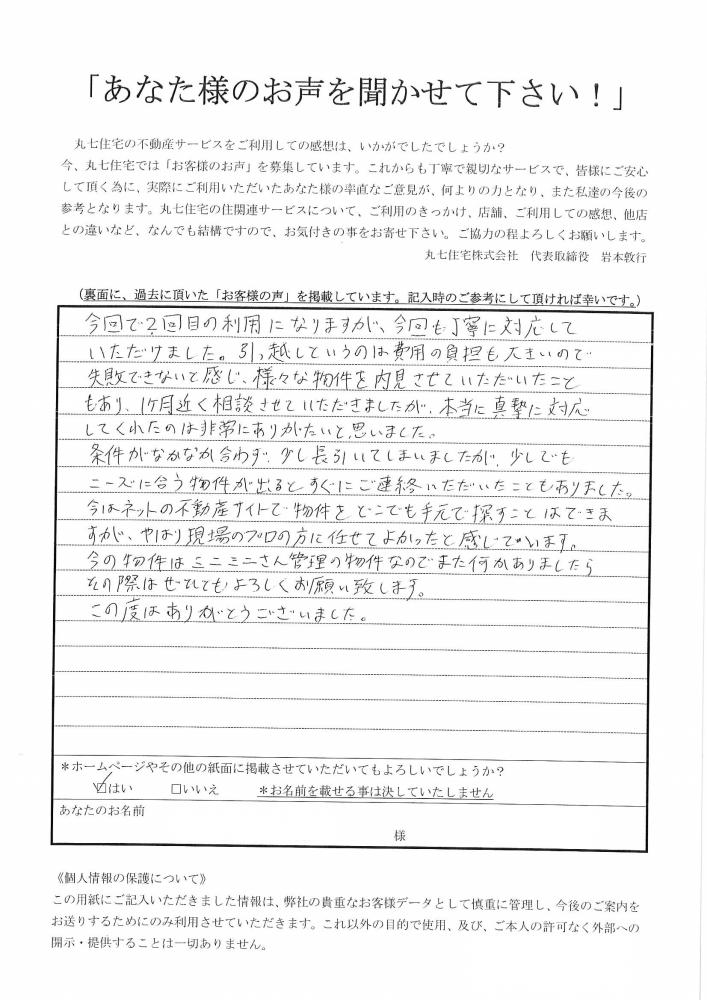 「あなた様のお声を聞かせて下さい！」
丸七住宅の不動産サービスをご利用しての感想は、いかがでしたでしょうか？
今、丸七住宅では「お客様のお声」を募集しています。これからも丁寧で親切なサービスで、皆様にご安心
して頂く為に、実際にご利用いただいたあなた様の率直なご意見が、何よりの力となり、また私達の今後の
参考となります。丸七住宅の住関連サービスについて、ご利用のきっかけ、店舗、ご利用しての感想、他店
との違いなど、なんでも結構ですので、お気付きの事をお寄せ下さい。ご協力の程よろしくお願いします。
丸七住宅株式会社　代表取締役　岩本敦行
（裏面に、過去に頂いた「お客様の声」を掲載しています。記入時のご参考にして頂ければ幸いです。）
今回で2回目の利用になりますが、今回も丁寧に対応して
いただけました。引っ越しというのは費用の負担も大きいので
失敗できないと感じ、様々な物件を内見させていただいたこと
もあり、1ヶ月近く相談させていただきましたが、本当に真摯に対応
してくれたのは非常にありがたいと思いました。
条件がなかなか合わず、少し長引いてしまいましたが、少しでも
ニーズに合う物件が出るとすぐにご連絡いただいたこともありました。
今はネットの不動産サイトで物件をどこでも手元で探すことはできま
すが、やはり現場のプロの方に任せてよかったと感じています。
今の物件はミニミニさん管理の物件なのでまた何かありましたら
その際はぜひともよろしくお願い致します。
この度はありがとうございました。
＊ホームページやその他の紙面に掲載させていただいてもよろしいでしょうか？
☑はい　　□いいえ　　＊お名前を載せる事は決していたしません
あなたのお名前
様
《個人情報の保護について》
この用紙にご記入いただきました情報は、弊社の貴重なお客様データとして慎重に管理し、今後のご案内を
お送りするためにのみ利用させていただきます。これ以外の目的で使用、及び、ご本人の許可なく外部への
開示・提供することは一切ありません。